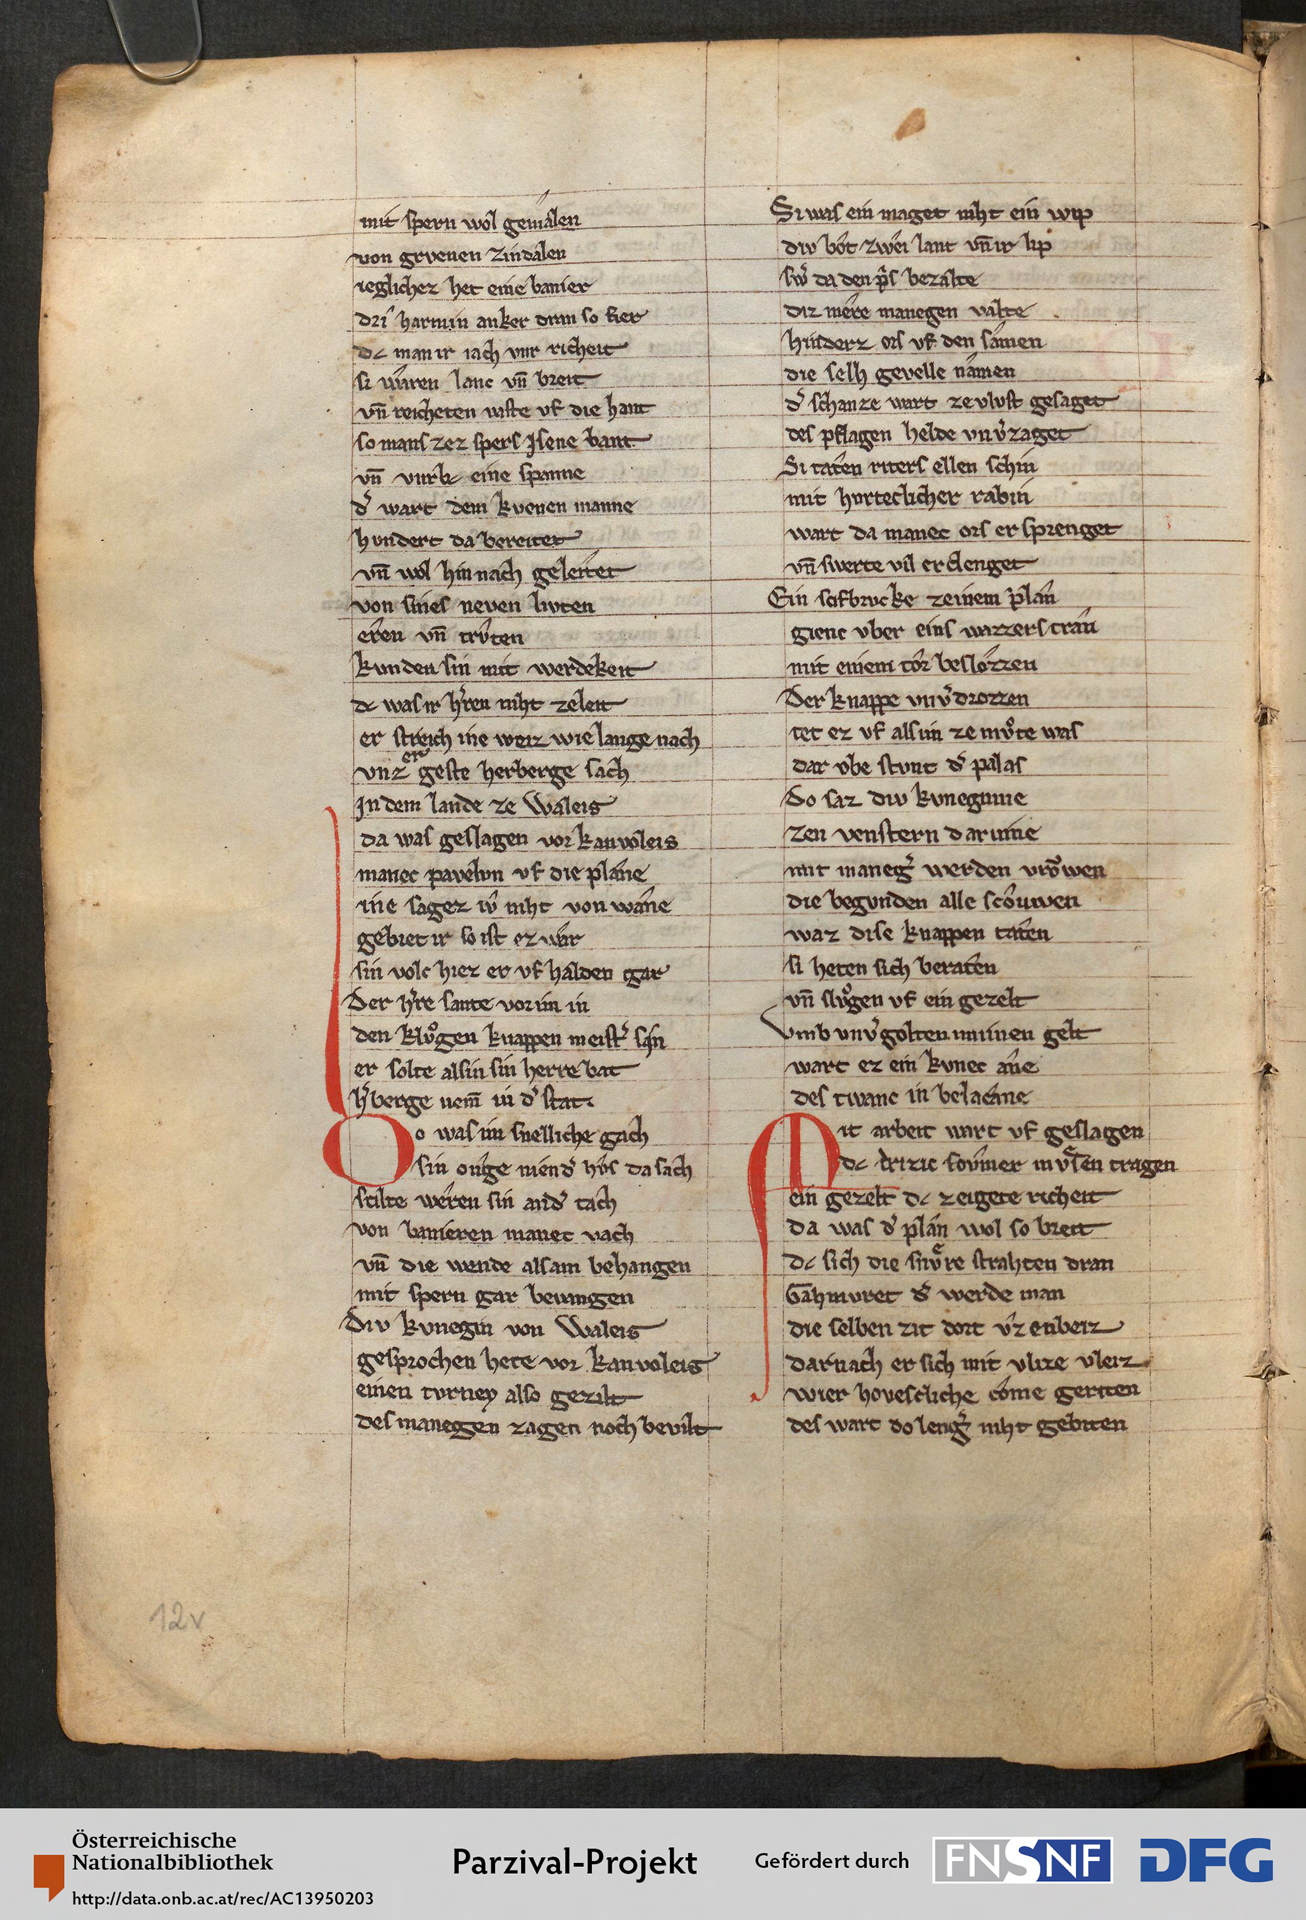 mit spern wol gemâlen
von grvenen zindâlen
ieglichez het eine banier
drî harmin anker dran so fier
dc man ir iach vur richeit
si wâren lanc vn̄ breit
vn̄ reicheten vaste vf die hant
so mans zez spers jsene bant
vn̄ vnrh eine spanne
d̓ wart dem kvenen manne
hvndert da bereitet
vn̄ wol hin nach geleitet
von sines neven livten
eren vn̄ trûten
kvnden sin mit werdekeit
dc was ir h̓ren niht ze leit
er streich ine weiz wie lange nach
vnz er geste herberge sach
jn dem lande ze Wâleis
da was geslagen vor kanvoleis
manec pavelvn vf die plâne
ine sagez iv̂ niht von wâne
gebiet ir so ist ez wâr
sin volc hiez er vf halden gar
Der h̓re sante vor im in
den klvͦgen knappen meist̓ sin
er solte als in sin herre bat
h̓berge nem̄ in d̓ stat
Do was im snelliche gach
sin ovge niend̓ hvs da sach
scilte weren sin and̓ tach
von banieren manec vach
vn̄ die wende alsam behangen
mit spern gar bevangen
Div kvnegin von Waleis
gesprochen hete vor kanvoleis
einen tvrney also gezilt
des manegen zagen noch bevilt
Si was ein maget niht ein wip
div bôt zwei lant vn̄ ir lip
sw̓ da den p̓s bezalte
diz mere manegen valte
hinderz ors vf den sâmen
die selh gevelle nâmen
d̓ schanze wart ze vlvst gesaget
des pflagen helde vnv̓zaget
Si taten riters ellen schin
mit hvrteclicher rabin
wart da manec ors ersprenget
vn̄ swerte vil erclenget
Ein scifbrvcke zeinem plân
gienc vber eins wazzers trân
mit einem tôr beslozzen
Der knappe vnv̓drozzen
tet ez vf als im ze mvͦte was
dar vbe stvnt d̓ palas
So saz div kvneginne
zen venstern darinne
mit maneg̓ werden vrôwen
die begvnden alle scôuwen
waz dise knappen tâten
si heten sich beraten
vn̄ slvͦgen vf ein gezelt
Vmb vnv̓golten minnen gelt
wart ez ein kvnec ane
des twanc in belacâne
Mit arbeit wart vf geslagen
dc drizic sôvmer mvͤsen tragen
ein gezelt dc zeigete richeit
da was d̓ plân wol so breit
dc sich die snvͤre strahten dran
Gahmvret d̓ werde man
die selben zit dort v̓z enbeiz
darnach er sich mit vlize vleiz
wier hovescliche come geriten
des wart do leng̓ niht gebiten
12v
Österreichische
Nationalbibliothek
http://data.onb.ac.at/rec/AC13950203
Parzival-Projekt
Gefördert durch
FNSNF
DFG